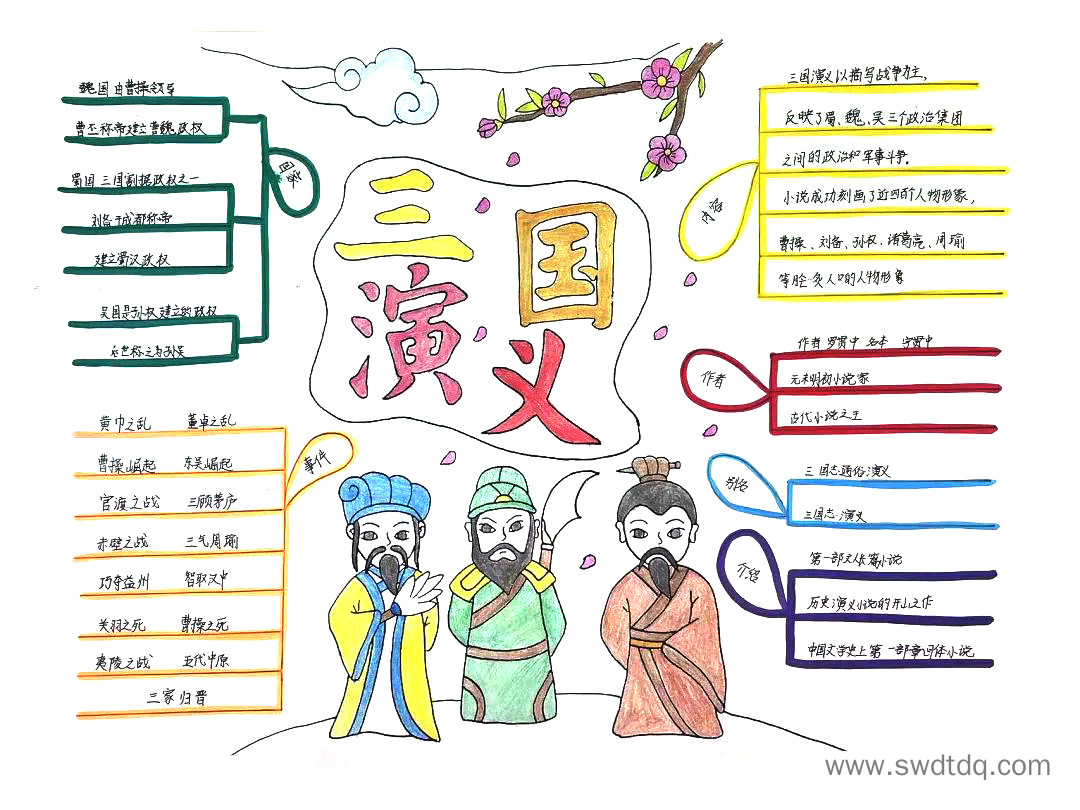 三国
演义
国家
魏国 由曹操领导
曹丕称帝建立曹魏政权
蜀国 三国割据政权之一
刘备于成都称帝
建立蜀汉政权
吴国是孙权建立的政权
后世称之为孙吴
事件
黄巾之乱 董卓之乱
曹操崛起 东吴崛起
官渡之战 三顾茅庐
赤壁之战 三气周瑜
巧夺益州 智取汉中
关羽之死 曹操之死
夷陵之战 五伐中原
三家归晋
内容
三国演义以描写战争为主,
反映了蜀、魏、吴三个政治集团
之间的政治和军事斗争。
小说成功刻画了近四百个人物形象,
曹操、刘备、孙权、诸葛亮、周瑜
等脍炙人口的人物形象
作者
作者 罗贯中 名本 字贯中
元末明初小说家
古代小说之王
别名
三国志通俗演义
三国志演义
介绍
第一部文人长篇小说
历史演义小说的开山之作
中国文学史上第一部章回体小说
www.swdtdq.com